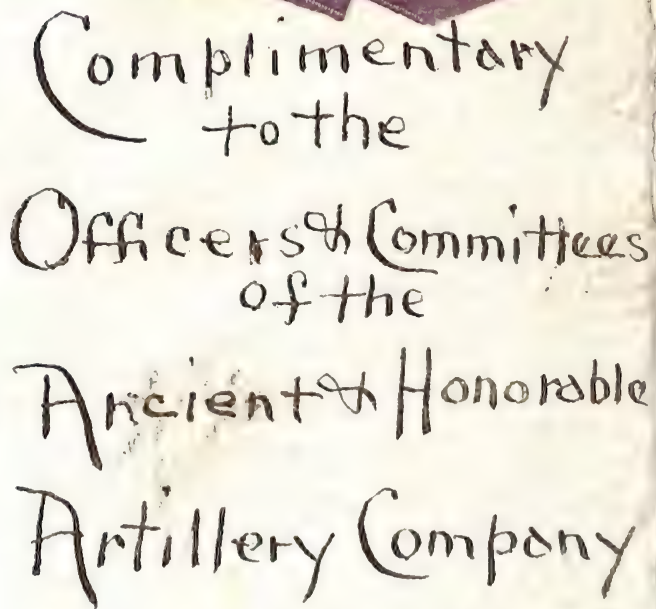 Complimentary
to the
Officers & Committees
of the
Ancient & Honorable
Artillery Company